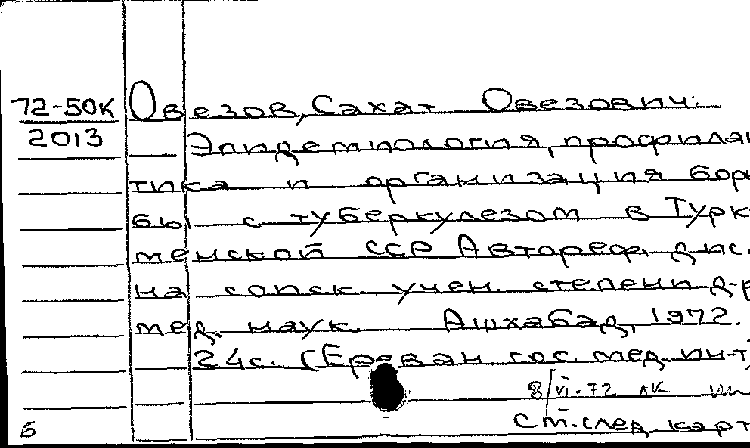 72-50К Овезов, Сахат Овезович.
2013 Эпидемиология, профилак
тика и организация борь
бы с туберкулезом в Турк
менской ССР Автореф. дис.
на соиск. учен. степени д-р
мед. наук. Ашхабад, 1972.
24с. (Ереван. гос. мед. ин-т
8/VI-72 ЛК
б ст. след. карт